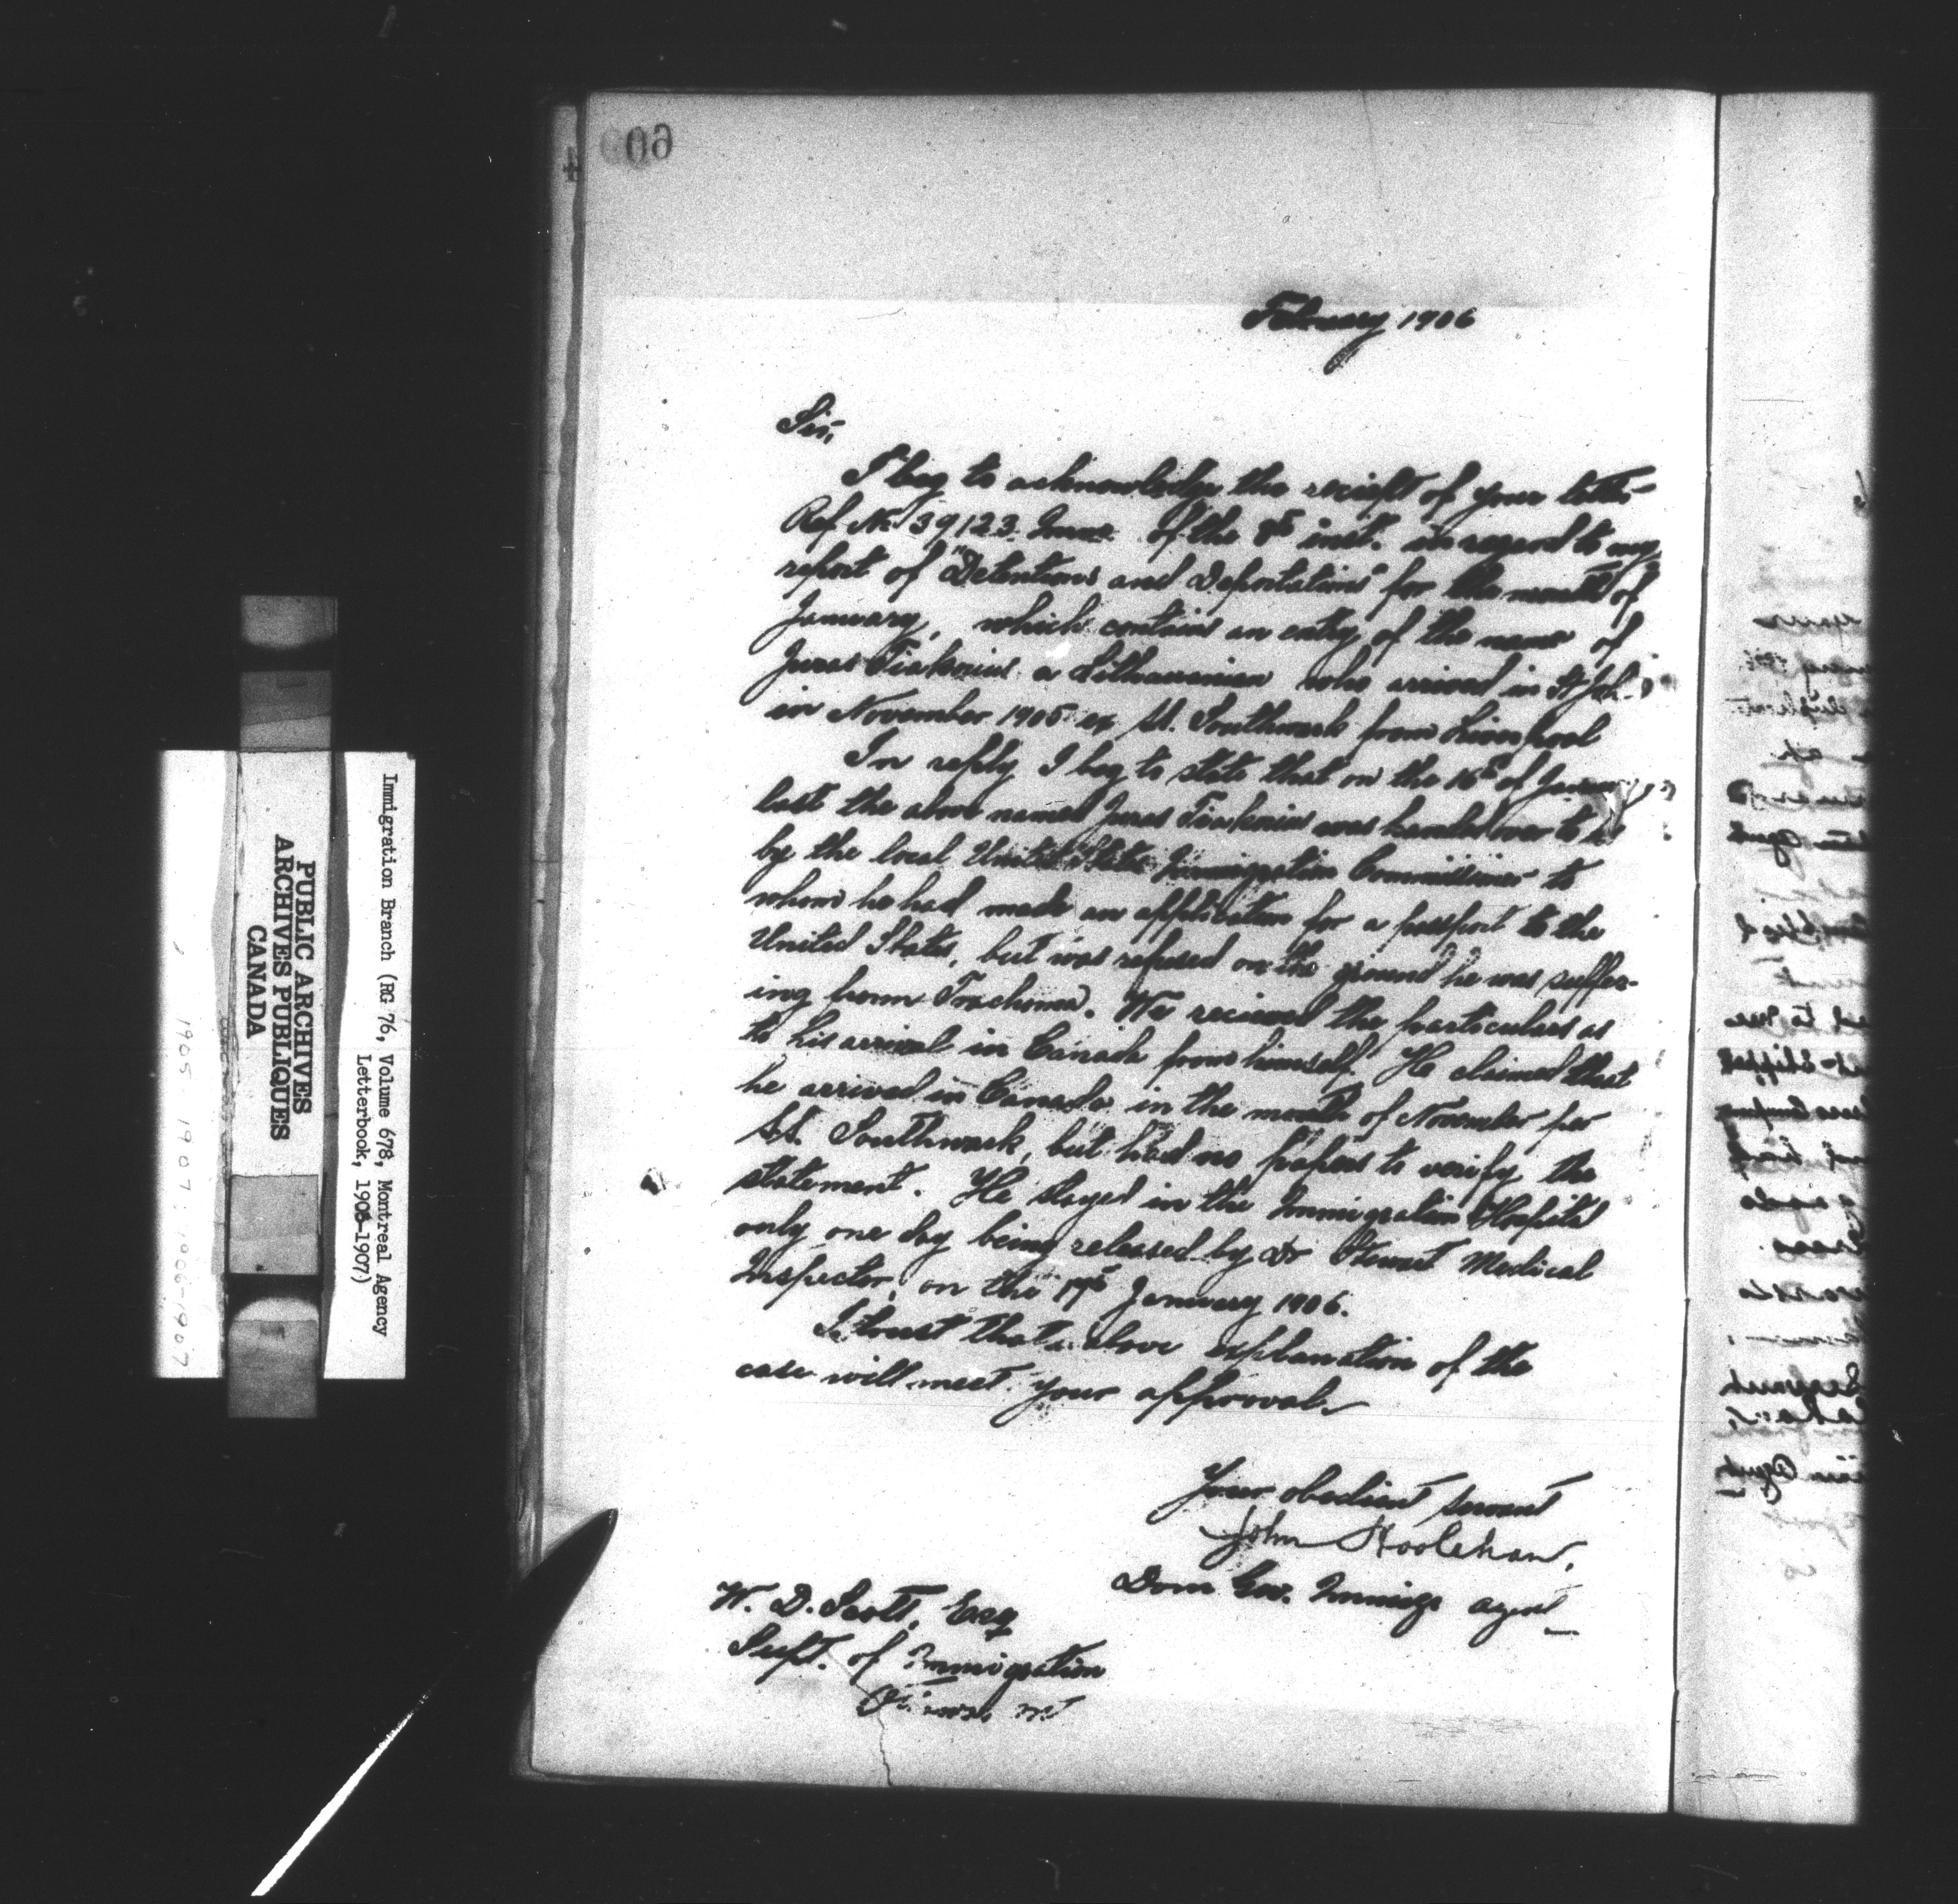 February 1906
Sir,
I beg to acknowledge the reciept of your letter
Ref No. 39123. Imm. of the 8th inst. in regard to my
report of "Detentions and Deportations" for the month of
January, which contains an entry of the name of
Juras a Lithauanian who arrived in St Joh
in November 1905 ex SS. Southwark from Liverpool
In reply I beg to state that on the 16th of January
last the above named Juras was handed over to us
by the local United States Immigration Commissioner to
whom he had made an application for a passport to the
United States, but was refused on the ground he was suffer-
ing from Trachoma. We recieved the particulars as
to his arrival in Canada from himself. He claimed that
he arrived in Canada in the month of November per
S.S. Southwark, but had no papers to verify the
statement. He stayed in the Immigration Hospital
only one day being released by Dr Stewart Medical
Inspector, on the 17th January 1906.
I trust that above explanation of the
case will meet your approval.
Your obedient servant
John Hoolahan,
Dom Gov. Immigr agent
W. D. Scott, Esq
Supt. of Immigration
Ottawa
Immigration Branch (RG 76, Volume 678, Montreal Agency
Letterbook, 1905-1907)
PUBLIC ARCHIVES
ARCHIVES PUBLIQUES
CANADA
1905-1907; 1906-1907